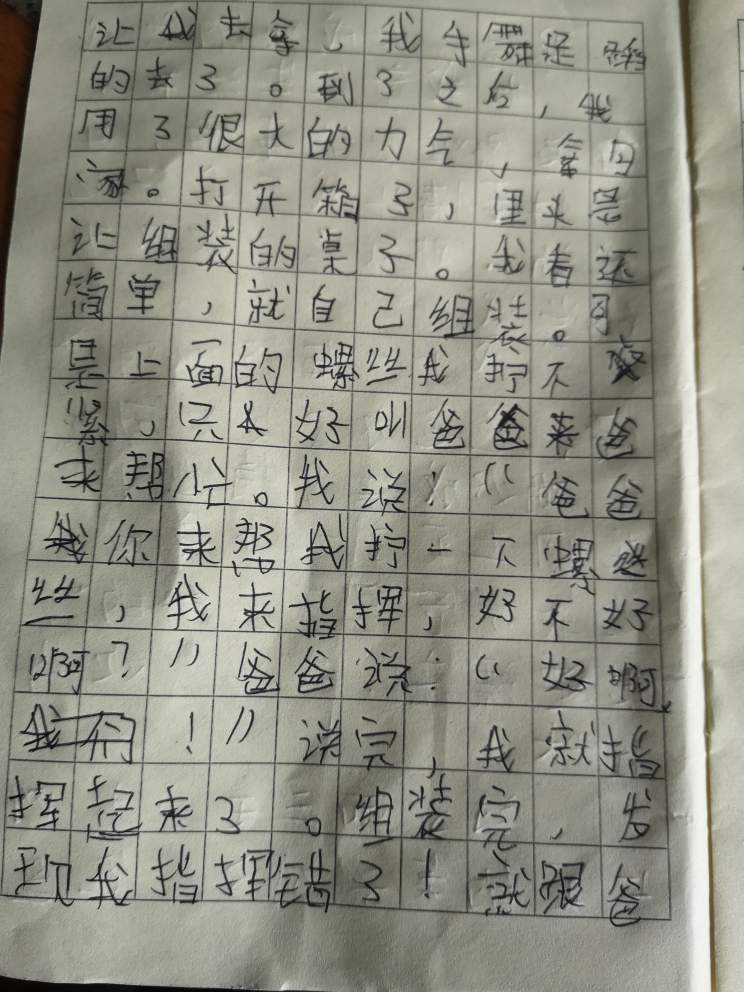 让我去拿，我手舞足蹈
的去了。到了之后，我
用了很大的力气，拿回
家。打开箱子，里头是
让组装的桌子。我看还
简单，就自己组装。可
是上面的螺丝我拧不
紧，只好叫爸爸来
来帮忙。我说：“爸爸
你来帮我拧一下螺
丝，我来指挥，好不好
啊？”爸爸说：“好啊，
！”说完，我就指
挥起来了。组装完，发
现我指挥错了！就跟爸